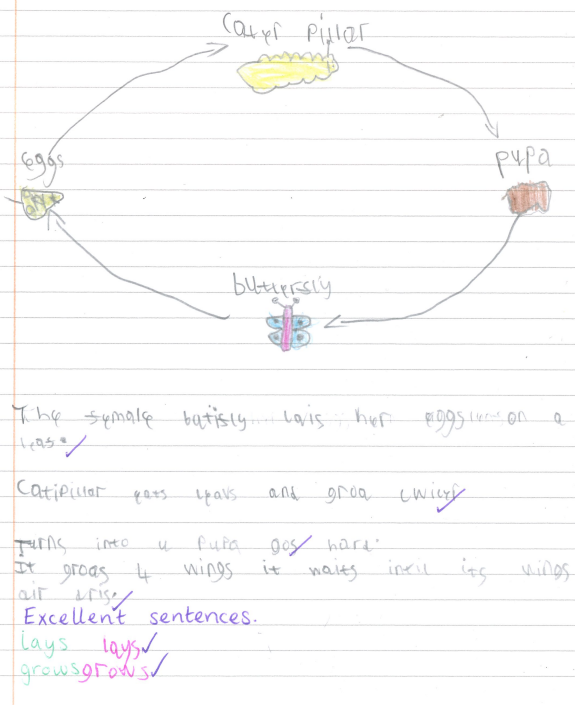 Catyr pillar
eggs
pupa
buttersly
The female batisly lais her eggs on a
leas.
Catipillar eats leavs and groa cwicly
Turns into a Pupa gos hard.
It groas 4 wings it waits intil its wings
air dris.
Excellent sentences.
lays lays
grows grows